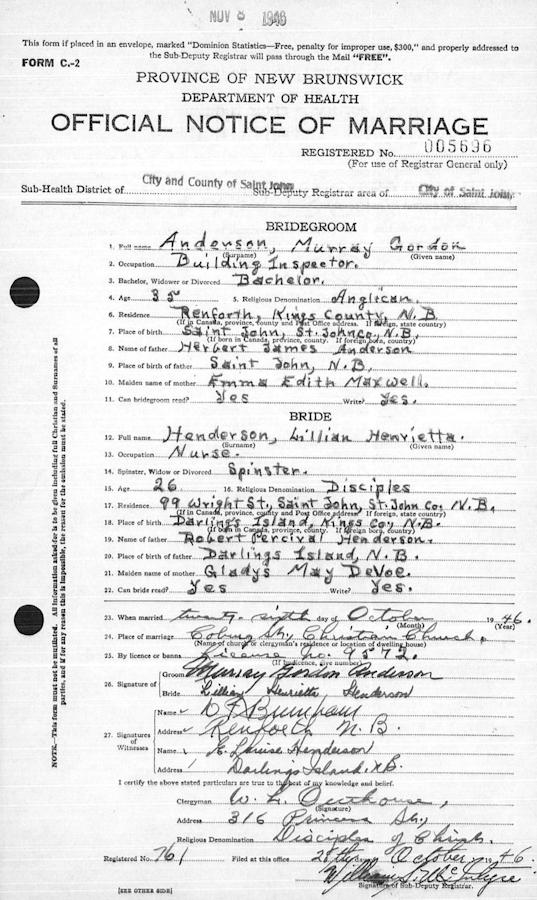 NOV 8 1946
This form if placed in an envelope, marked "Dominion Statistics—Free, penalty for improper use, $300," and properly addressed to
the Sub-Deputy Registrar will pass through the Mail "FREE".
FORM C.-2
PROVINCE OF NEW BRUNSWICK
DEPARTMENT OF HEALTH
OFFICIAL NOTICE OF MARRIAGE
REGISTERED No. 005696
(For use of Registrar General only)
Sub-Health District of City and County of Saint John Sub-Deputy Registrar area of City of Saint John
BRIDEGROOM
1. Full name Anderson, Murray Gordon
(Surname) (Given name)
2. Occupation Building Inspector.
3. Bachelor, Widower or Divorced Bachelor.
4. Age 35 5. Religious Denomination Anglican.
6. Residence Renforth, Kings County, N.B.
(If in Canada, province, county and Post Office address. If foreign, state country)
7. Place of birth Saint John, St. John Co., N.B.
(If born in Canada, province, county. If foreign born, country)
8. Name of father Herbert James Anderson
9. Place of birth of father Saint John, N.B.
10. Maiden name of mother Emma Edith Maxwell.
11. Can bridegroom read? Yes Write? Yes.
BRIDE
12. Full name Henderson, Lillian Henrietta.
(Surname) (Given name)
13. Occupation Nurse.
14. Spinster, Widow or Divorced Spinster.
15. Age 26 16. Religious Denomination Disciples
17. Residence 99 Wright St., Saint John, St. John Co., N.B.
(If in Canada, province, county and Post Office address. If foreign, state country)
18. Place of birth Darlings Island, Kings Co., N.B.
(If born in Canada, province, county. If foreign born, country)
19. Name of father Robert Percival Henderson.
20. Place of birth of father Darlings Island, N.B.
21. Maiden name of mother Gladys May DeVoe.
22. Can bride read? Yes Write? Yes.
23. When married twenty-sixth day of October 1946.
(Month) (Year)
24. Place of marriage Coburg St., Christian Church.
(Name of church or clergyman's residence or location of dwelling house)
25. By licence or banns License no. 9572.
(If by licence, give number)
26. Signature of
Groom Murray Gordon Anderson
Bride Lillian Henrietta Henderson
27. Signatures of Witnesses
Name Burnham
Address Renforth N.B.
Name Louise Henderson
Address Darlings Island. N.B.
I certify the above stated particulars are true to the best of my knowledge and belief.
Clergyman W. L. Outhouse,
(Signature)
Address 316 Princess St.,
Religious Denomination Disciples of Christ.
Registered No. 761 Filed at this office 28th day October 1946.
William S. McIntyre
Signature of Sub-Deputy Registrar.
[SEE OTHER SIDE]
NOTE.—This form must not be mutilated. All information asked for is to be given including full Christian and Surnames of all
parties, and if for any reason this is impossible, the reason for the omission must be stated.